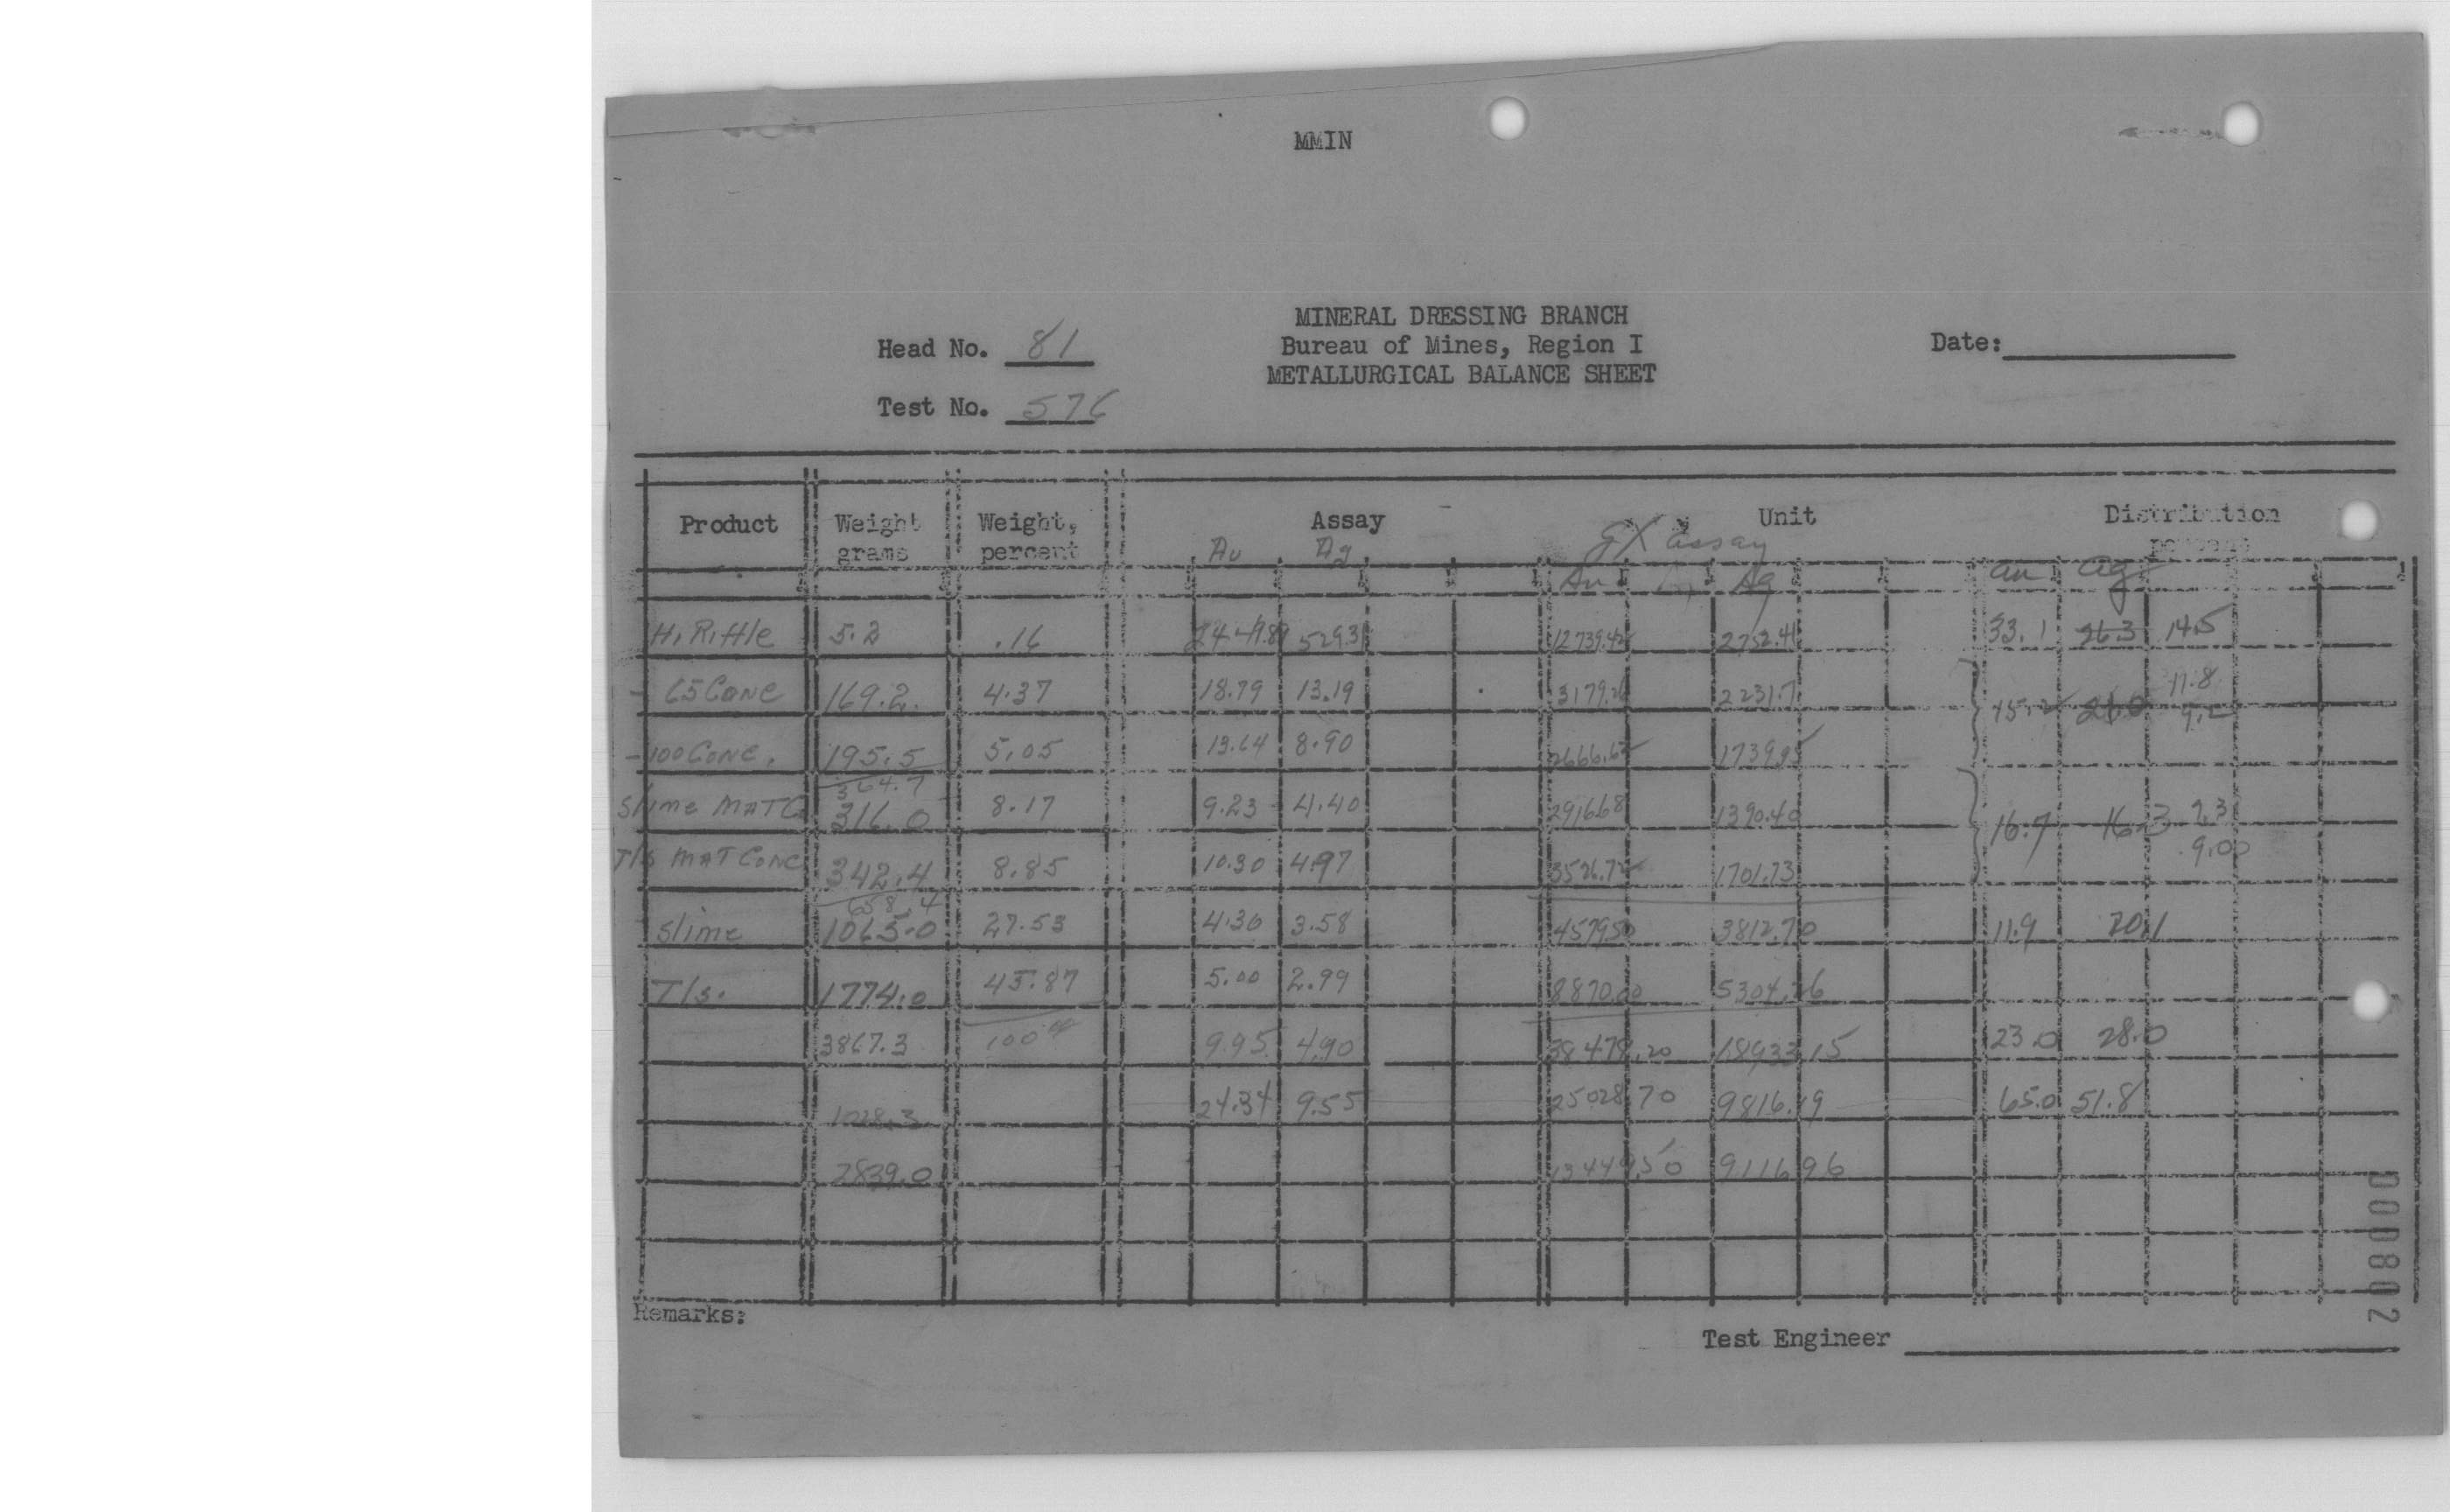 MMIN
MINERAL DRESSING BRANCH
Head No. 81 Bureau of Mines, Region I Date:
METALLURGICAL BALANCE SHEET
Test No. 576
Product Weight grams Weight, percent Assay Unit Distribution percent
Au Ag g X assay
Au Ag au ag
H. Riffle 5.2 .16 2449.89 529.31 12739.42 2752.41 33.1 26.3 14.5
- 65 Conc 169.2 4.37 18.79 13.19 3179.26 2231.7 15.2 26.0 11.8
9.2
-100 Conc. 195.5 5.05 13.64 8.90 2666.62 1739.95
364.7
Slime MAT C. 316.0 8.17 9.23 4.40 2916.68 1390.40 16.7 16.3 7.3
T/s MAT Conc 342.4 8.85 10.30 4.97 3526.72 1701.73 9.00
658.4
Slime 1065.0 27.53 4.30 3.58 4579.50 3812.70 11.9 20.1
T/s. 1774.0 45.87 5.00 2.99 8870.00 5304.26
3867.3 100 9.95 4.90 38478.20 18933.15 23.0 28.0
1028.3 24.34 9.55 25028.70 9816.19 65.0 51.8
2839.0 13449.50 9116.96
Remarks:
Test Engineer
000802